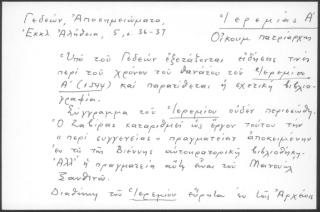 Γεδεών, Ἀποσημειώματα,
Ἐκκλ. Ἀλήθεια, 5, σ. 36-37
Ἱερεμίας Α΄
Οἰκουμ. πατριάρχης
Ὑπὸ τοῦ Γεδεὼν ἐξετάζονται εἰδήσεις τινὲς
περὶ τοῦ χρόνου τοῦ θανάτου τοῦ Ἱερεμίου
Α΄ (1544) καὶ παρατίθεται ἡ σχετικὴ βιβλιο-
γραφία.
Σύγγραμμα τοῦ Ἱερεμίου οὐδὲν περιεσώθη.
Ὁ Ζαβίρας καταριθμεῖ ὡς ἔργον τούτου τὴν
«περὶ συγγενείας» πραγματείαν ἀποκειμένην
ἐν τῇ τῆς Βιέννης αὐτοκρατορικῇ βιβλιοθήκῃ.
Ἀλλ' ἡ πραγματεία αὕτη εἶναι τοῦ Μανουὴλ
Ξανθινοῦ.
Διαθήκη τοῦ Ἱερεμίου εὕρηται ἐν τοῖς Ἀρχείοις